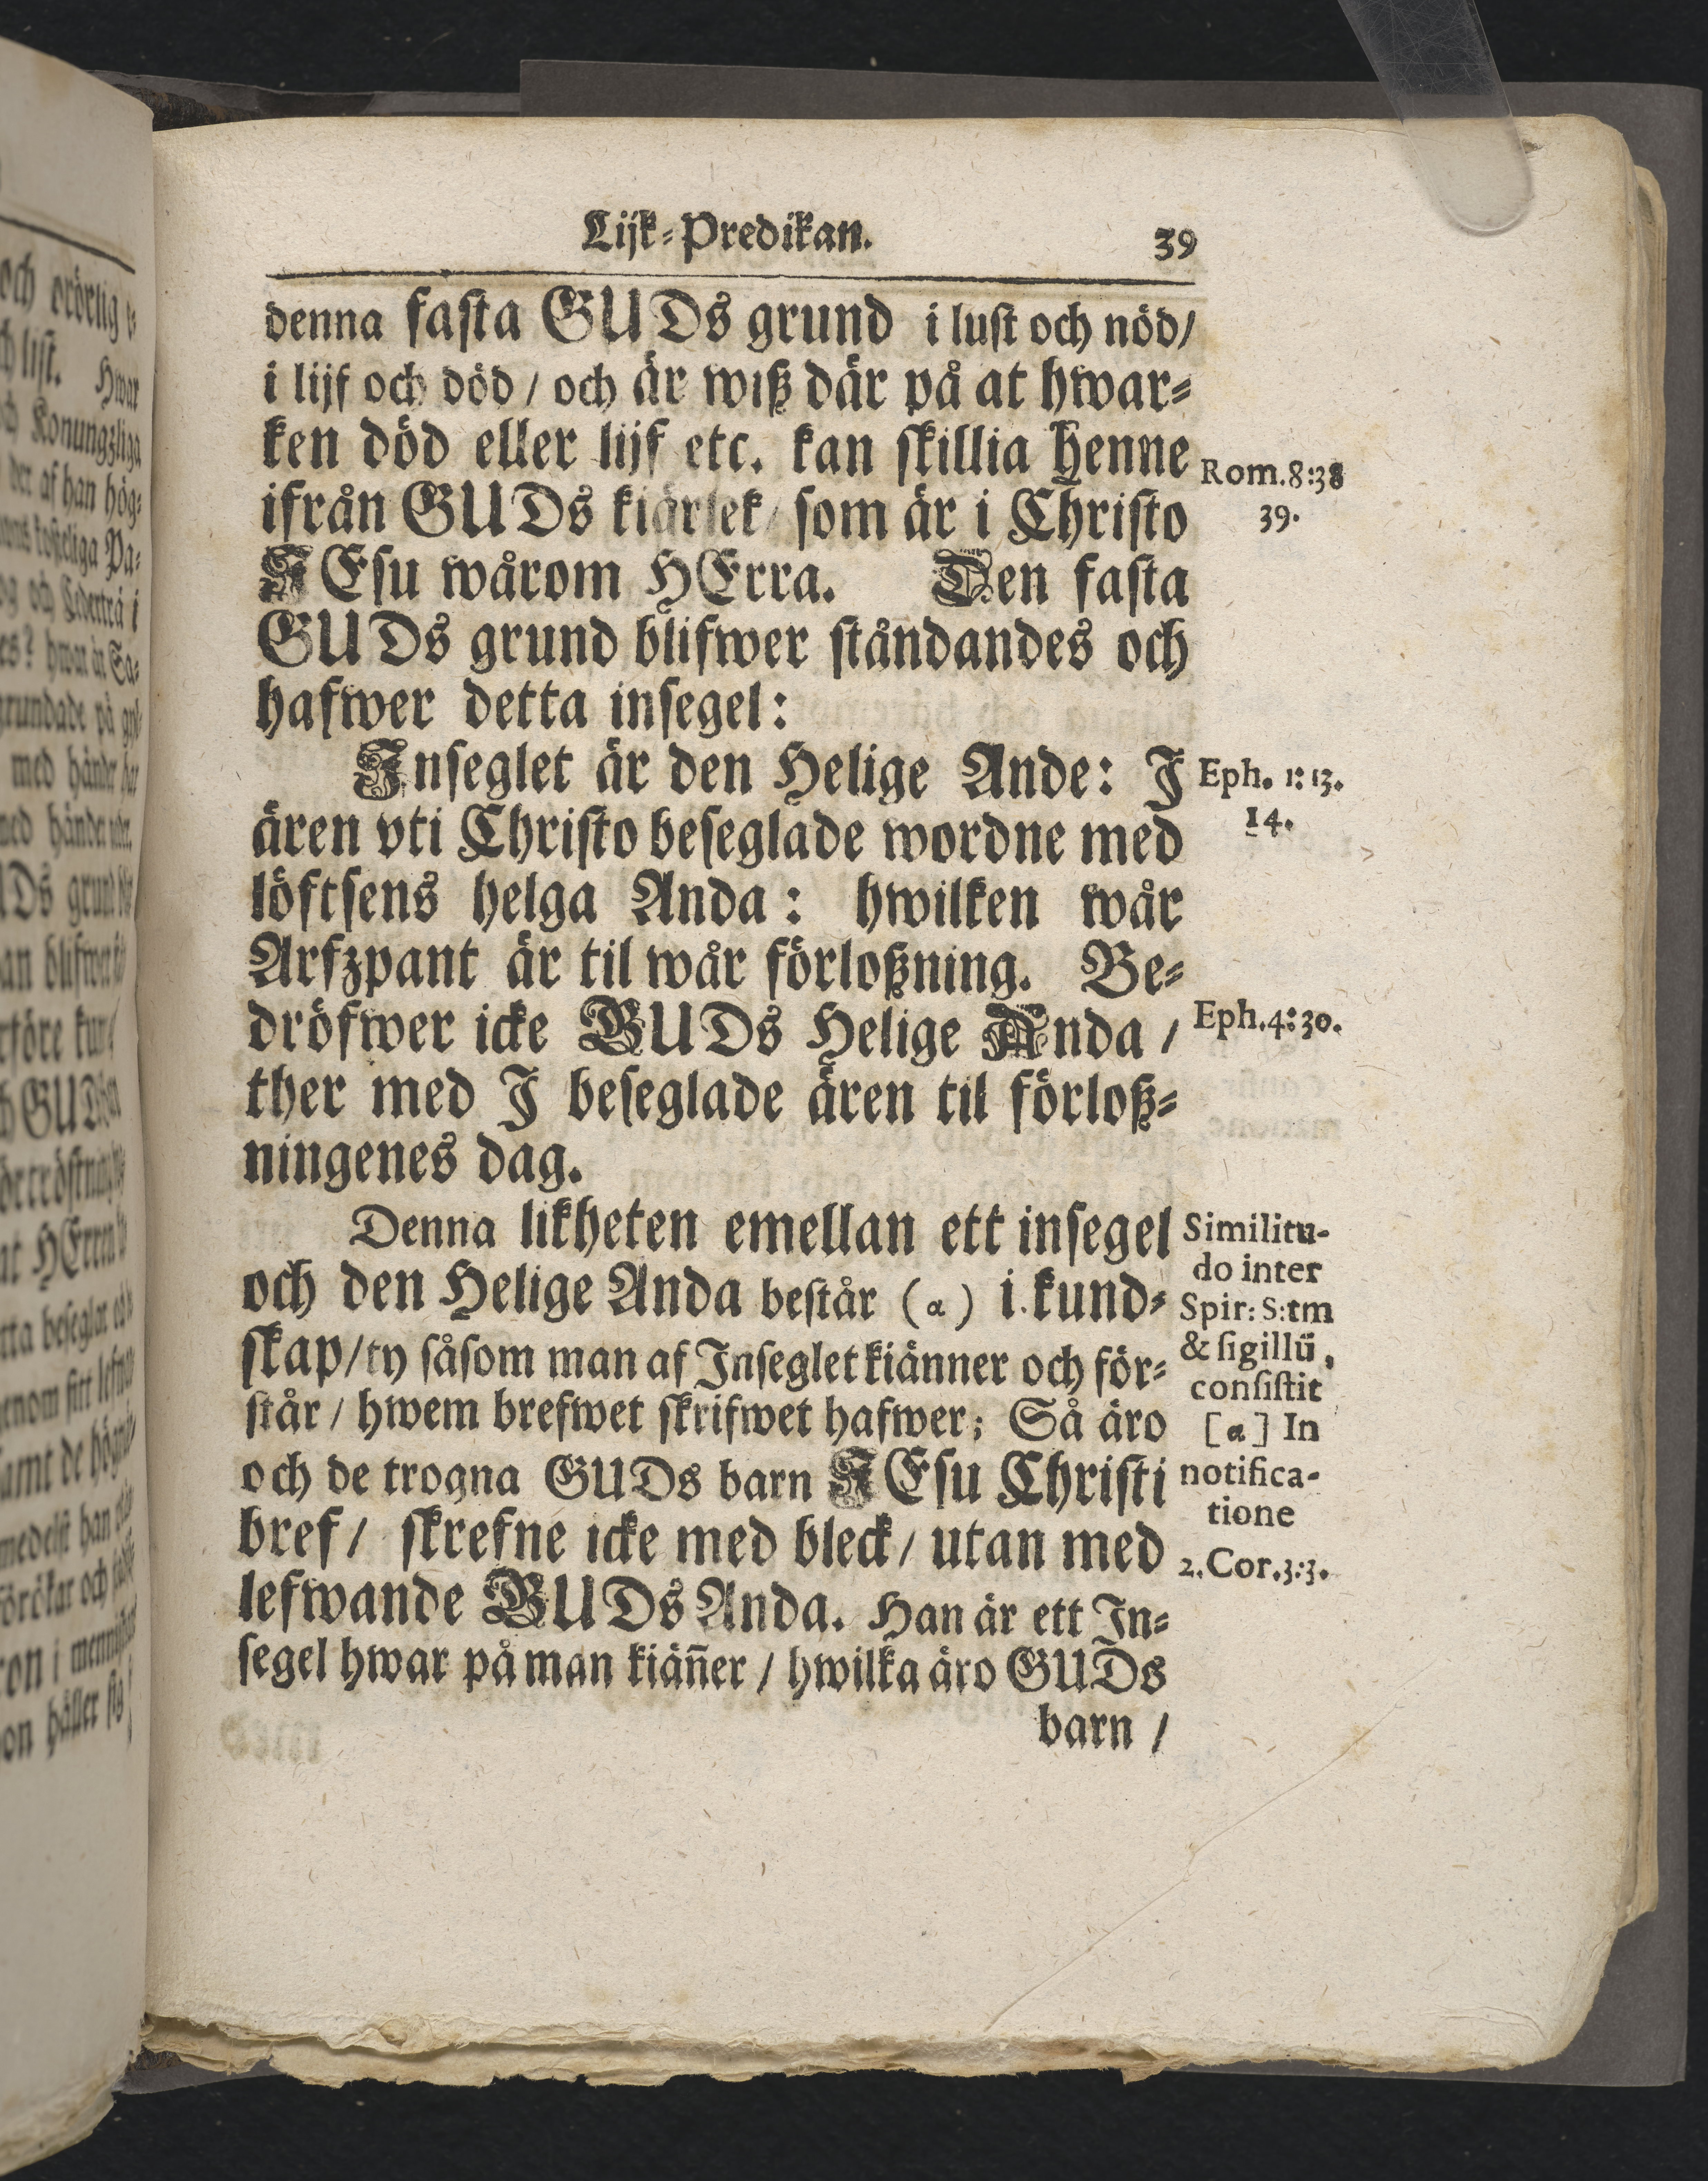 Lijk-Predikan. 39
denna fasta GUDs grund i lust och nöd/
i lijf och död / och är wiß där på at hwar-
ken död eller lijf etc. kan skillia henne
Rom.8:38
ifrån GUDs kiärlek/ som är i Christo
39.
JEsu wårom HErra. Den fasta
GUDs grund blifwer ståndandes och
hafwer detta insegel:
Inseglet är den Helige Ande: I
Eph. 1:13.
ären vti Christo beseglade wordne med
14.
löftsens helga Anda: hwilken wår
Arfzpant är til wår förloßning. Be-
dröfwer icke GUDs Helige Anda /
Eph.4:30.
ther med I beseglade ären til förloß-
ningenes dag.
Denna likheten emellan ett insegel
och den Helige Anda består (α) i kund-
skap/ty såsom man af Inseglet kiänner och för-
står / hwem brefwet skrifwet hafwer; Så äro
och de trogna GUDs barn JEsu Christi
bref/ skrefne icke med bleck/ utan med
lefwande GUDs Anda. Han är ett In-
segel hwar på man kiäñer / hwilka äro GUDs
barn /
Similitu-
do inter
Spir: S:tm
& sigillū,
consistit
[α] In
notifica-
tione
2.Cor.3:3.